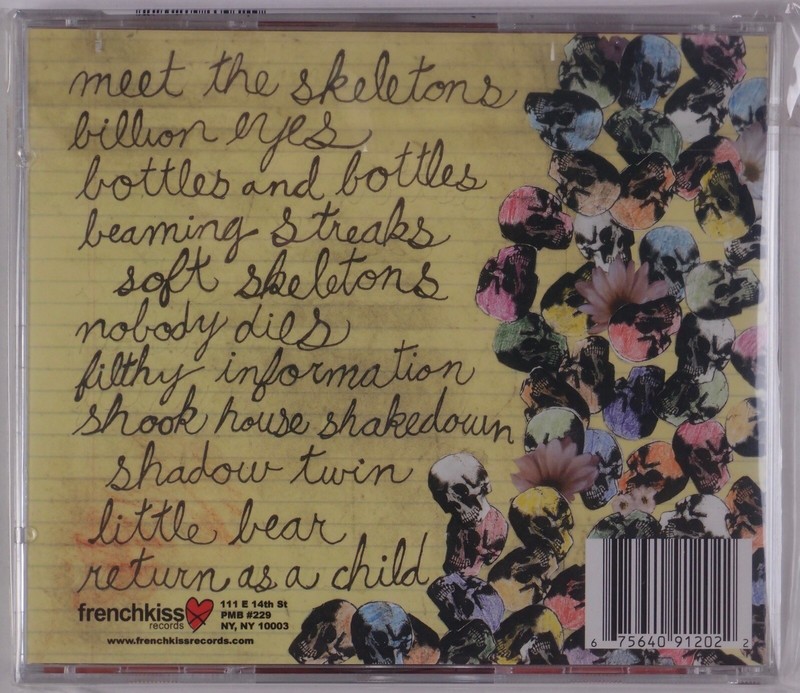 meet the skeletons
billion eyes
bottles and bottles
beaming streaks
soft skeletons
nobody dies
filthy information
shook house shakedown
shadow twin
little bear
return as a child
frenchkiss
records
111 E 14th St
PMB #229
NY, NY 10003
www.frenchkissrecords.com
6 75640 91202 2